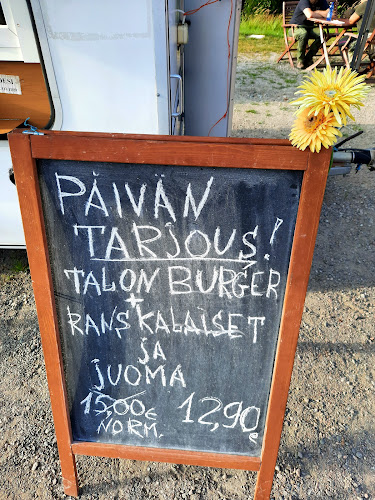 PÄIVÄN
TARJOUS!
TALON BURGER
+
RANSKALAISET
JA
JUOMA
15,00€ 12,90€
NORM.